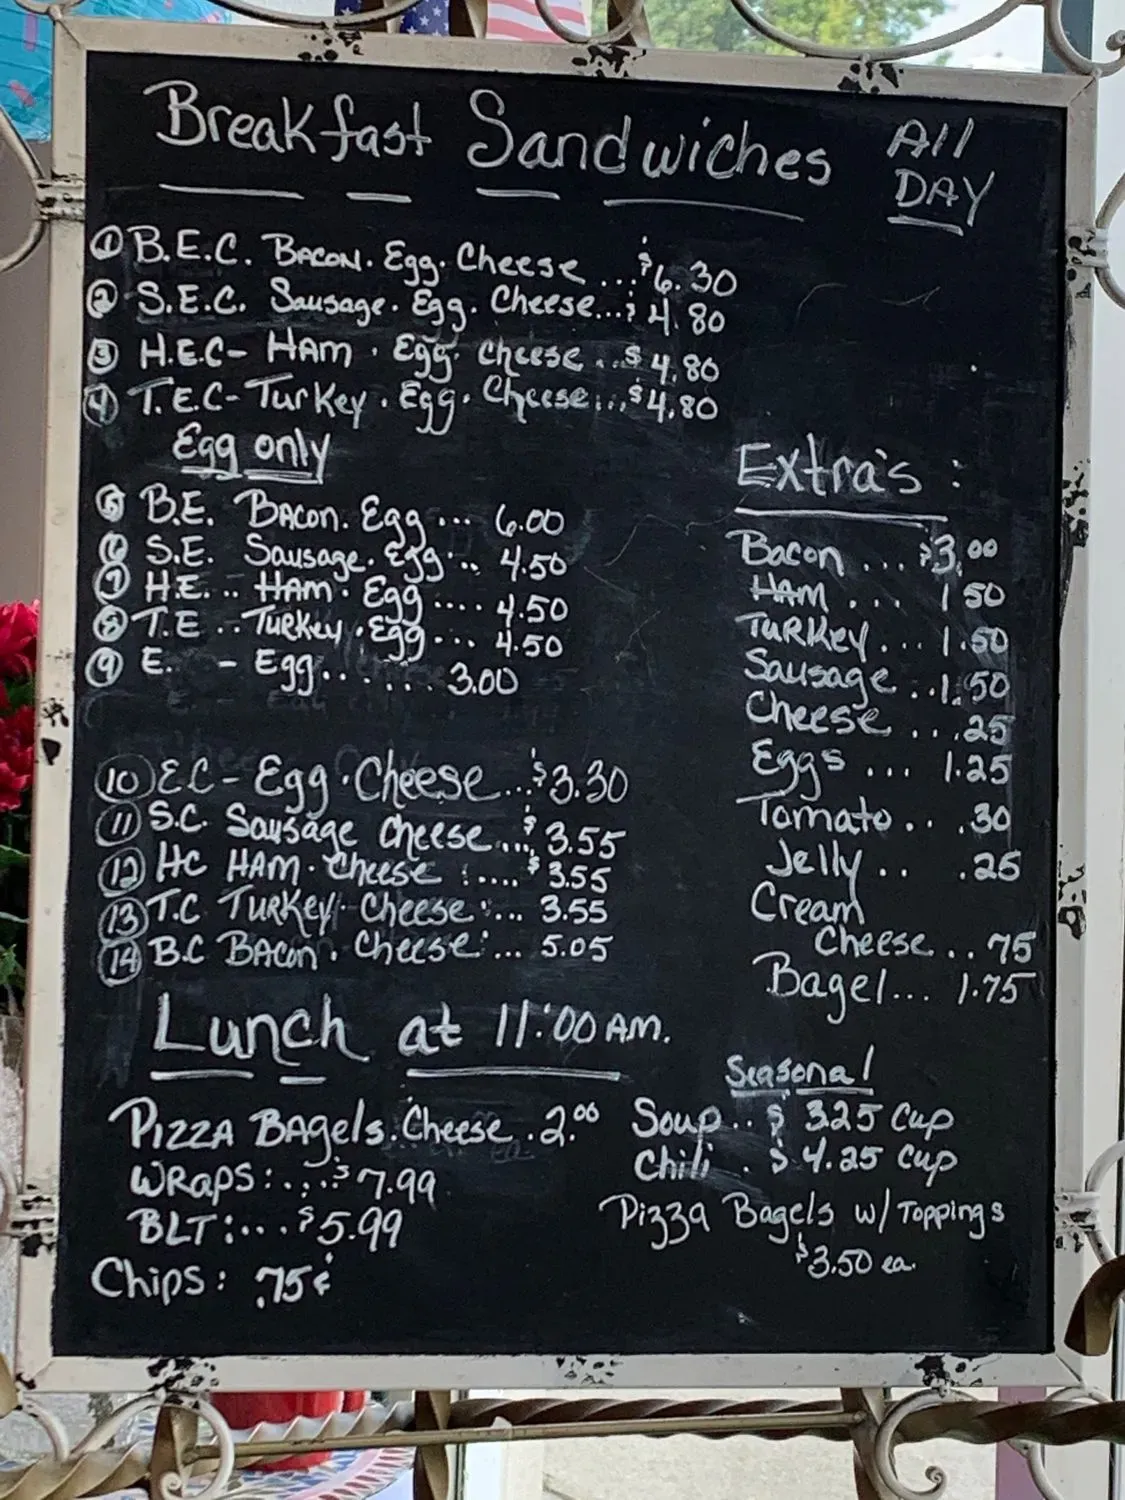 Breakfast Sandwiches All DAY
① B.E.C. BACON. Egg. Cheese ... $6.30
② S.E.C. Sausage. Egg. Cheese...$4.80
③ H.E.C- HAM . Egg. Cheese ..$4.80
④ T.E.C- Turkey . Egg. Cheese...$4.80
Egg only
⑤ B.E. BACON. Egg ... 6.00
⑥ S.E. Sausage. Egg .. 4.50
⑦ H.E. .. HAM. Egg .... 4.50
⑧ T.E .. Turkey . Egg ... 4.50
⑨ E. - Egg....... 3.00
⑩ E.C - Egg . Cheese...$3.30
⑪ S.C. Sausage Cheese...$3.55
⑫ HC HAM . Cheese :....$3.55
⑬ T.C TURKEY . Cheese ... 3.55
⑭ B.C BACON . Cheese ... 5.05
Extra's :
Bacon ... $3.00
HAM ... 1 50
Turkey... 1.50
Sausage ..1.50
Cheese ...25
Eggs ... 1.25
Tomato .. .30
Jelly .. .25
Cream
Cheese .. 75
Bagel... 1.75
Lunch at 11:00 AM.
PIZZA BAgels. Cheese .2.00
WRAPS:...$7.99
BLT:...$5.99
Chips: .75¢
Seasonal
Soup .. $ 3.25 Cup
Chili . $ 4.25 Cup
Pizza Bagels w/ Toppings
$3.50 ea.